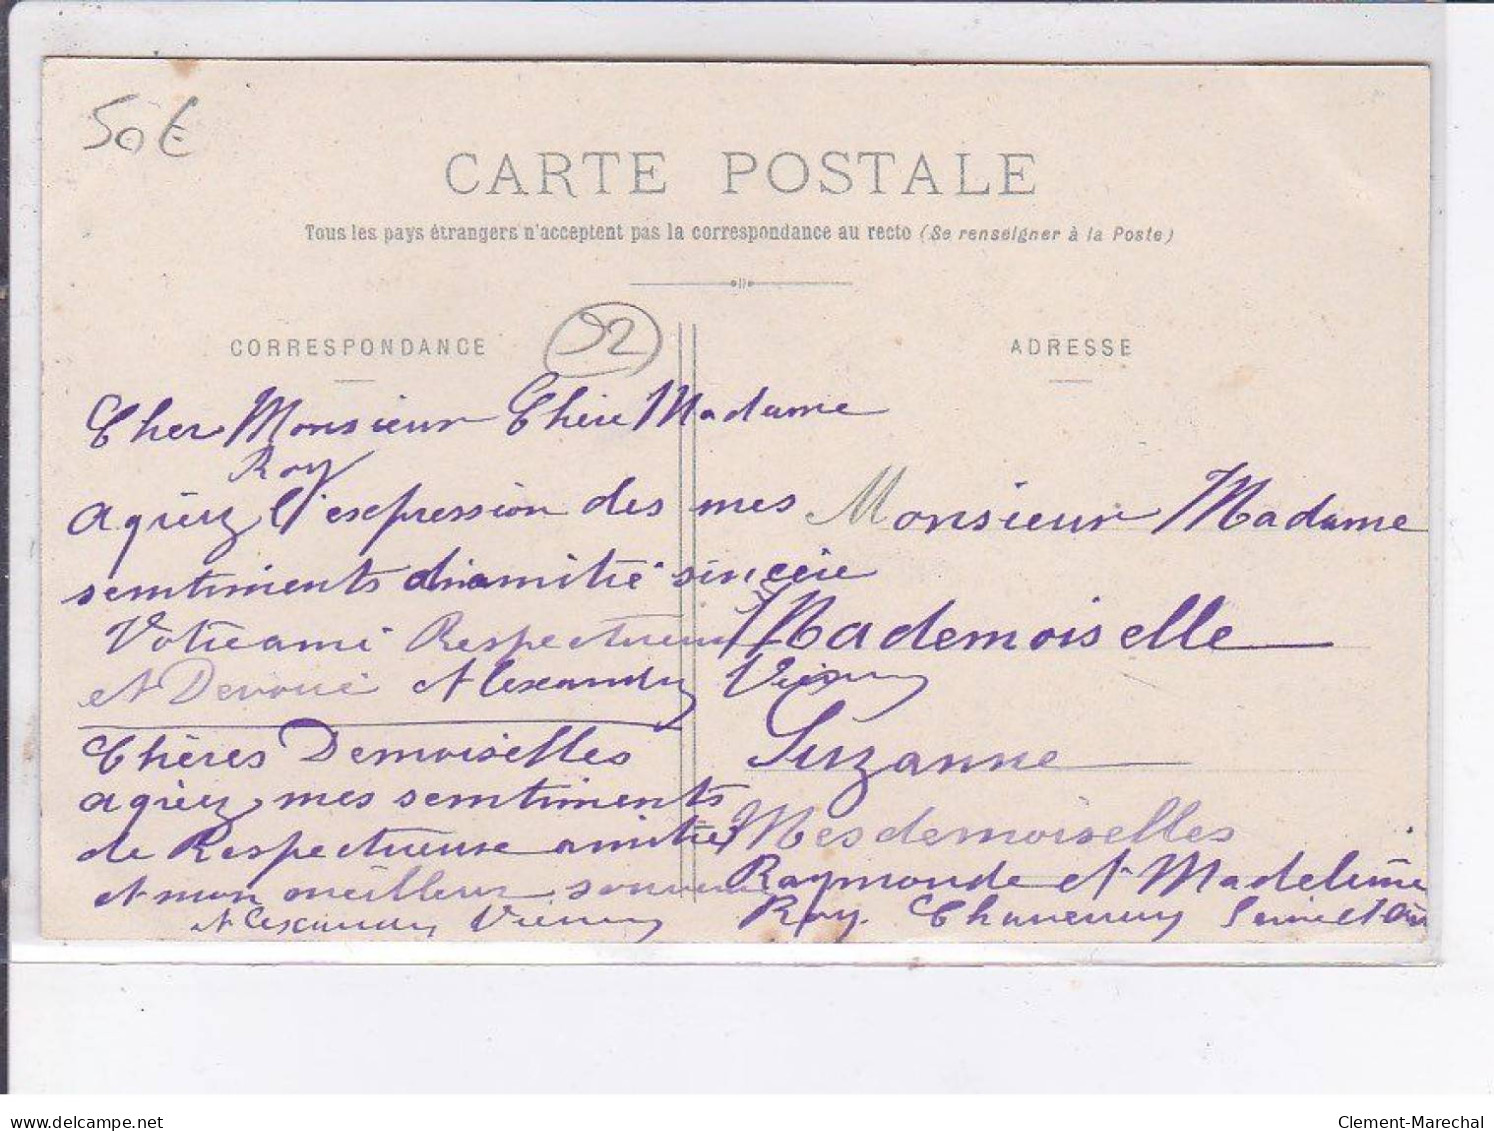 50€
CARTE POSTALE
Tous les pays étrangers n'acceptent pas la correspondance au recto (Se renseigner à la Poste)
CORRESPONDANCE
92
Cher Monsieur Chère Madame
Roy
agréez l'expression des mes
sentiments d'amitié sincère
Votre ami Respectueux
et Devoué Alexandre Vieny
Chères Demoiselles
agréez mes sentiments
de Respectueuse amitié
et mon meilleur souvenir
Alexandre Vieny
ADRESSE
Monsieur Madame
Mademoiselle
Suzanne
Mesdemoiselles
Raymonde et Madeleine
Roy. Chavenay Seine et Oise
delcampe.net
Clement-Marechal